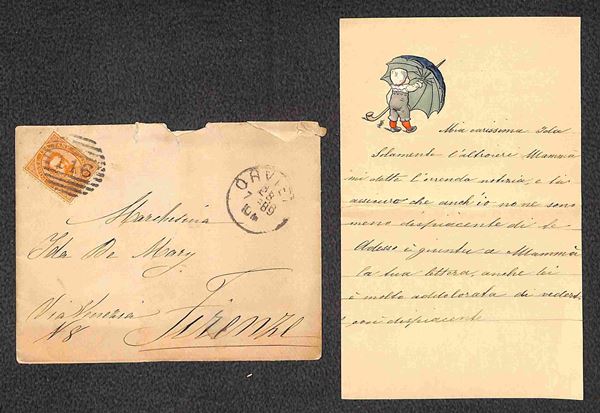 146
ORVIETO
7
89
10M
Marchesina
Ida De Mary
Via Venezia
N 8
Firenze
Mia carissima Ida
Solamente l'altroieri Mammà
mi dette l'orrenda notizia, e ti
assicuro che anch'io non ne sono
meno despiacente di te
Adesso è giunta a Mammà
la tua lettera, anche lei
è molto addolorata di vederti
così despiacente